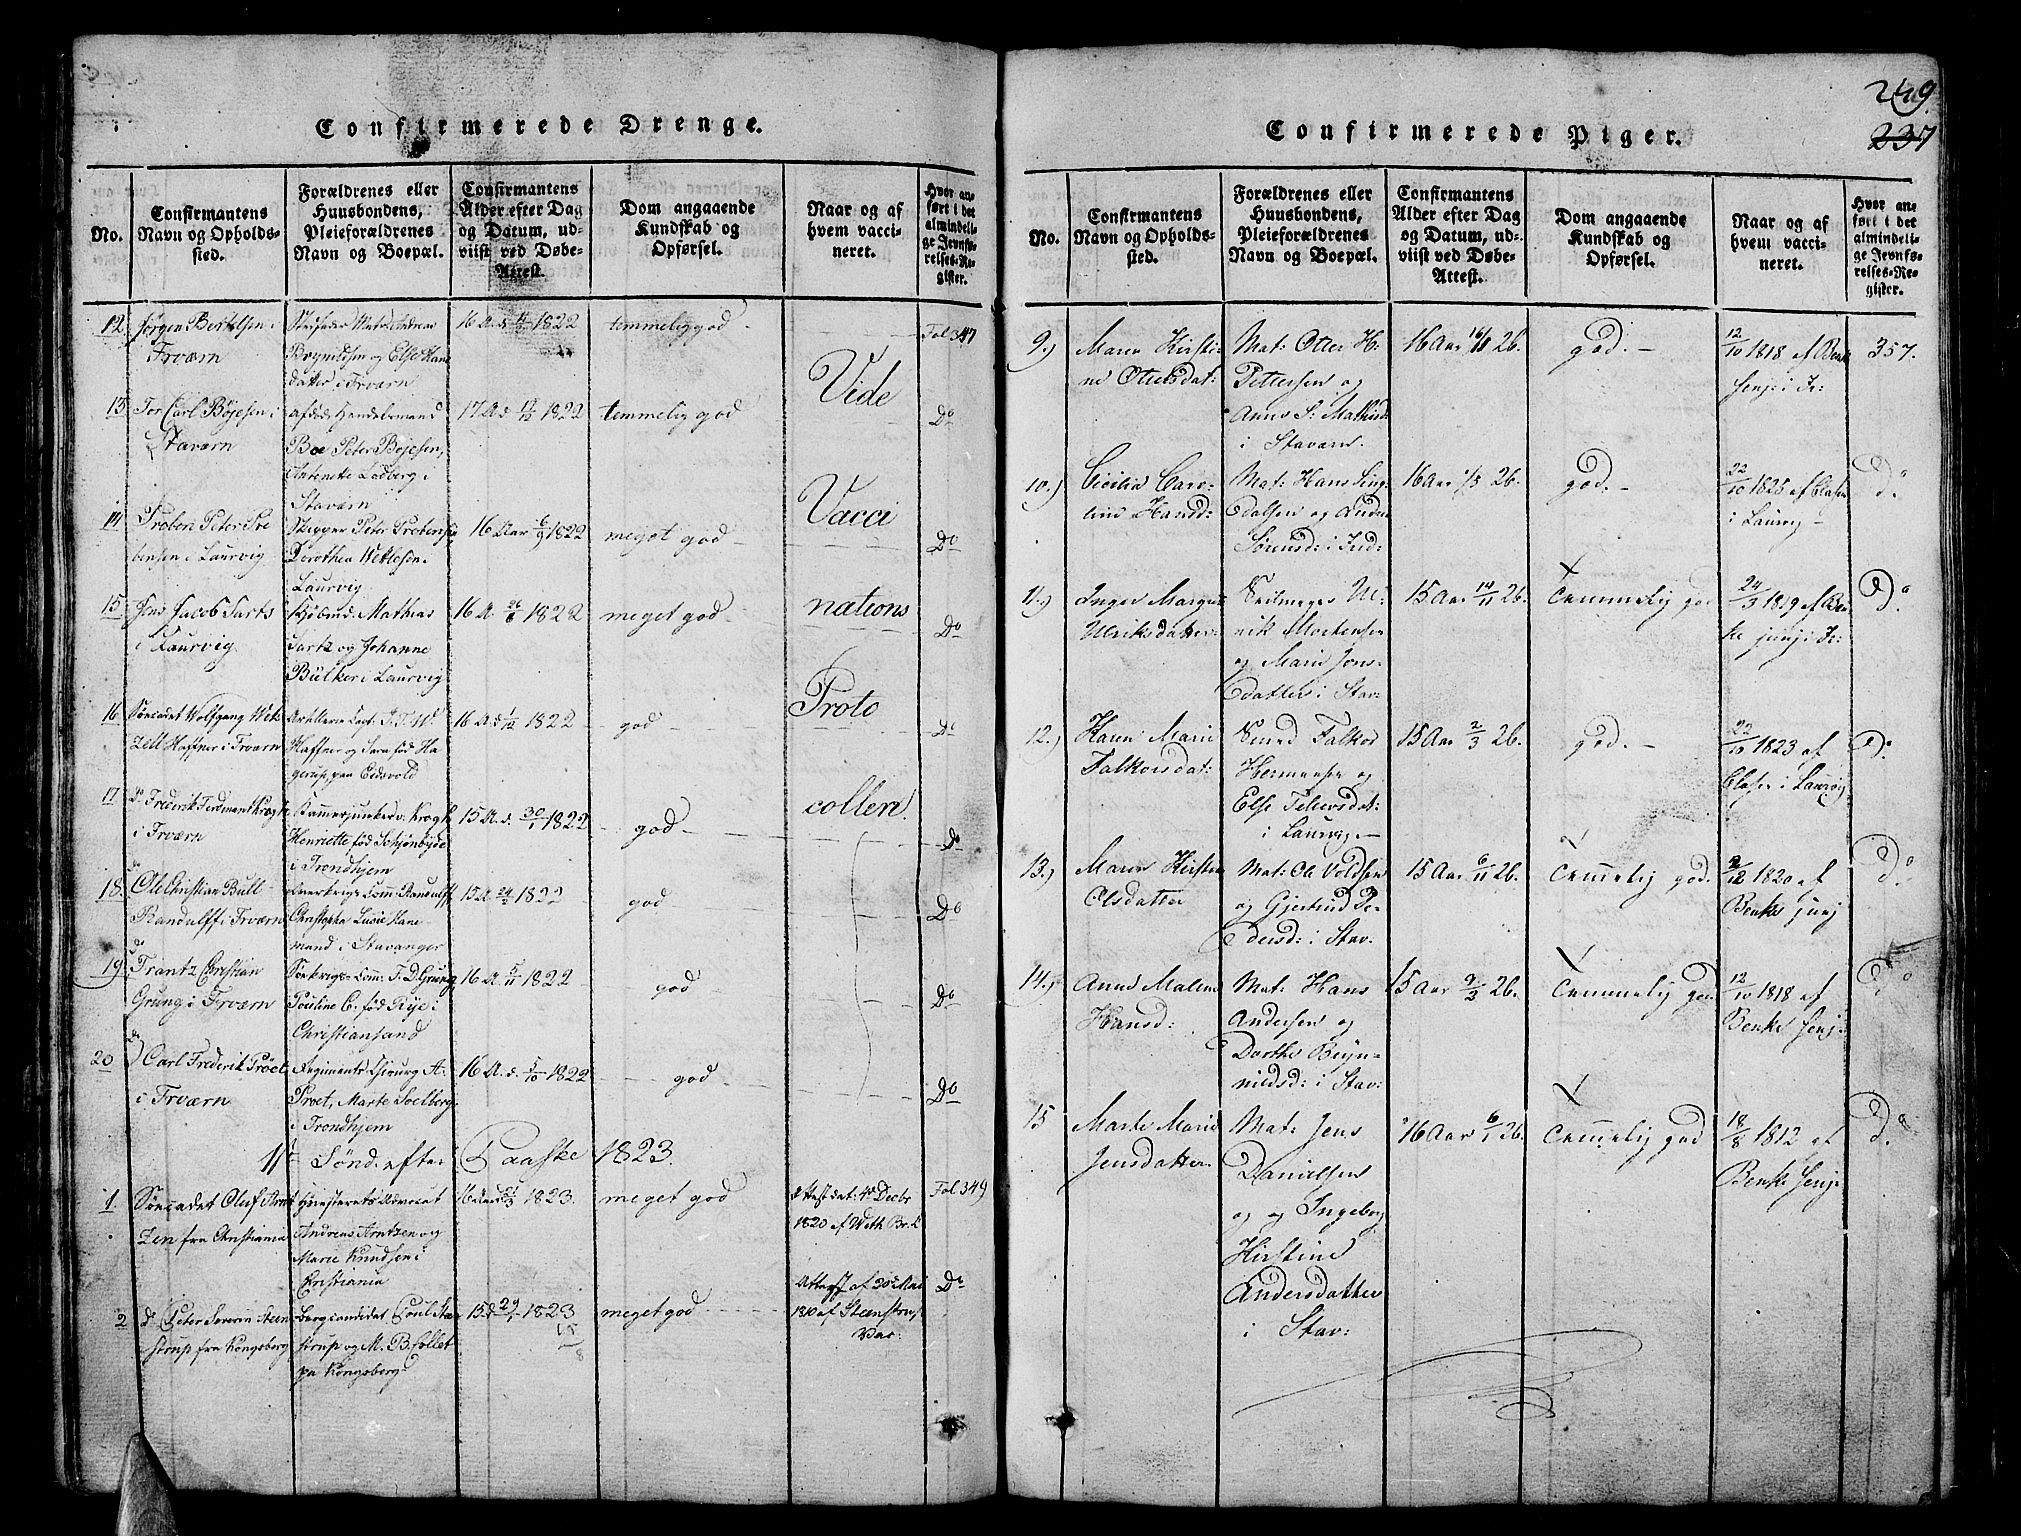 Confirmerede Drenge.
No.
Confirmantens
Navn og Opholds-
sted.
Forældrenes eller
Huusbondens,
Pleieforældrenes
Navn og Boepæl.
Confirmantens
Alder efter Dag
og Datum, ud-
viist ved Døbe-
Attest.
Dom angaaende
Kundskab og
Opførsel.
Naar og af
hvem vacci-
neret.
Hvor an-
ført i det
almindeli-
ge Jevnfø-
relses-Re-
gister.
12
Jørgen Bertelsen i
Frværn
og Else Hane
datter i Frværn
16 A. d. 1822
temmelig god
Fol 347
13
Tor Carl Böjesen i
Staværn
Boe Peter Böjesen,
Antonette Lodberg i
Staværn
17 A. d. 1822
temmelig god
Do
14
Preben Peter Pre
bensen i Laurvig
Skipper Peter Prebensen
Dorothea Wetlesen
Laurvig
16 Aar 6/9 1822
meget god
Do
15
Jens Jacob Sartz
i Laurvig
Mathias
Sartz og Johanne
Bülker i Laurvig
16 A. 26/6 1822
meget god
Do
16
Söecadet Wolfgang Wet
zell Haffner i Frværn
Artillerie Capt:
Haffner og Sara född Ha
gerup, paa Eidsvold
16 A. d. 1/12 1822
god
Do
17
do Frederik Ferdinand Krogh
i Frværn
Kammerjunker v. Krogh
Henriette född Schjönbyde
i Trondhjem
15 A. d. 30/1 1822
god
Do
18
do
Ole Christian Bull
Randulff i Frværn
Comm: Randulff
Christopha Lusie Hane
mand i Stavanger
15 A 24/2 1822
god
Do
19
do
Frantz Christian
Grung i Frværn
Sörkrigs-Comm: F. D. Grung,
Pouline C. född Rÿe i
Christiansand
16 A. 5/11 1822
god
Do
20
do
Carl Frederik Proet
i Frværn
Regiments Chirurg A.
Proet, Marte Soelberg
i Trondhjem
16 A. d. 5/10 1822
god
Do
Vide
Vacci
nations
Proto
collen.
11te Sönd. efter Paaske 1823.
1.
Söecadet Oluf Arnt
zen fra Christiania
Höiesterets Advocat
Andreas Arntzen og
Marie Knudsen i
Christiania
16 Aar 1823.
meget god
Attest dat: 4de Decbr
1820 af Weth
Fol 349
2
do Peter Severin Steen
strup fra Kongsberg
Bergcandidat Poul Steen
strup og M. B. Collet
paa Kongsberg
15 d 29/1 1823
meget god
Attest af 20de Mai
1810 af Steenstrup
Do
249.
237
Confirmerede Piger.
No.
Confirmantens
Navn og Opholds-
sted.
Forældrenes eller
Huusbondens,
Pleieforældrenes
Navn og Boepæl.
Confirmantens
Alder efter Dag
og Datum, ud-
viist ved Døbe-
Attest.
Dom angaaende
Kundskab og
Opførsel.
Naar og af
hvem vacci-
neret.
Hvor an-
ført i det
almindeli-
ge Jevnfø-
relses-Re-
gister.
9.)
Maren Kirsti-
ne Ottersdat:
Mat: Otter H.
Pettersen og
Anne S: Mathisd:
i Staværn.
16 Aar 16/11 26.
god.
12/10 1818 af Benke
Senj: i Fr:
357.
10.)
Cicilia Caro-
line Hansd:
Mat: Hans Eng-
Edalsen og Anne
Sörensd: i Fred:
16 Aar 1/5 26.
god.
22/10 1825 af Clasen
i Laurvig
Do
11.)
Inger Margre
Ulriksdatter
Seilmager Ul-
rik Mortensen
og Marie Jons-
datter i Stav:
15 Aar 14/11 26.
Temmelig god
24/3 1819 af Ben
ke junj: i Fr:
Do
12.)
Karen Marie
Falkorsdat:
Smed Falkor
Hermansen og
Else Tellersdat:
i Laurvig.
15 Aar 2/3 26.
god.
22/10 1823 af
Clasen i Laurvig
Do
13.)
Maren Kirstine
Olsdatter
Mat: Ole Voldsen
og Gjertrud Pe-
dersd: i Stav:
15 Aar 6/11 26.
Temmelig god.
2/12 1820 af
Benke junj
Do
14.)
Anne Malene
Hansd:
Mat: Hans
Andersen og
Dorthe Breÿn-
nildsd: i Stav:
15 Aar 9/3 26.
Temmelig god
12/10 1818 af
Benke Senj:
Do
15
Marte Marie
Jensdatter
Mat: Jens
Danielsen
og Ingeborg
Kirstine
Andersdatter
i Stav:
16 Aar 6/1 26.
Temmelig god
18/8 1812 af
Benke Senj:
Do